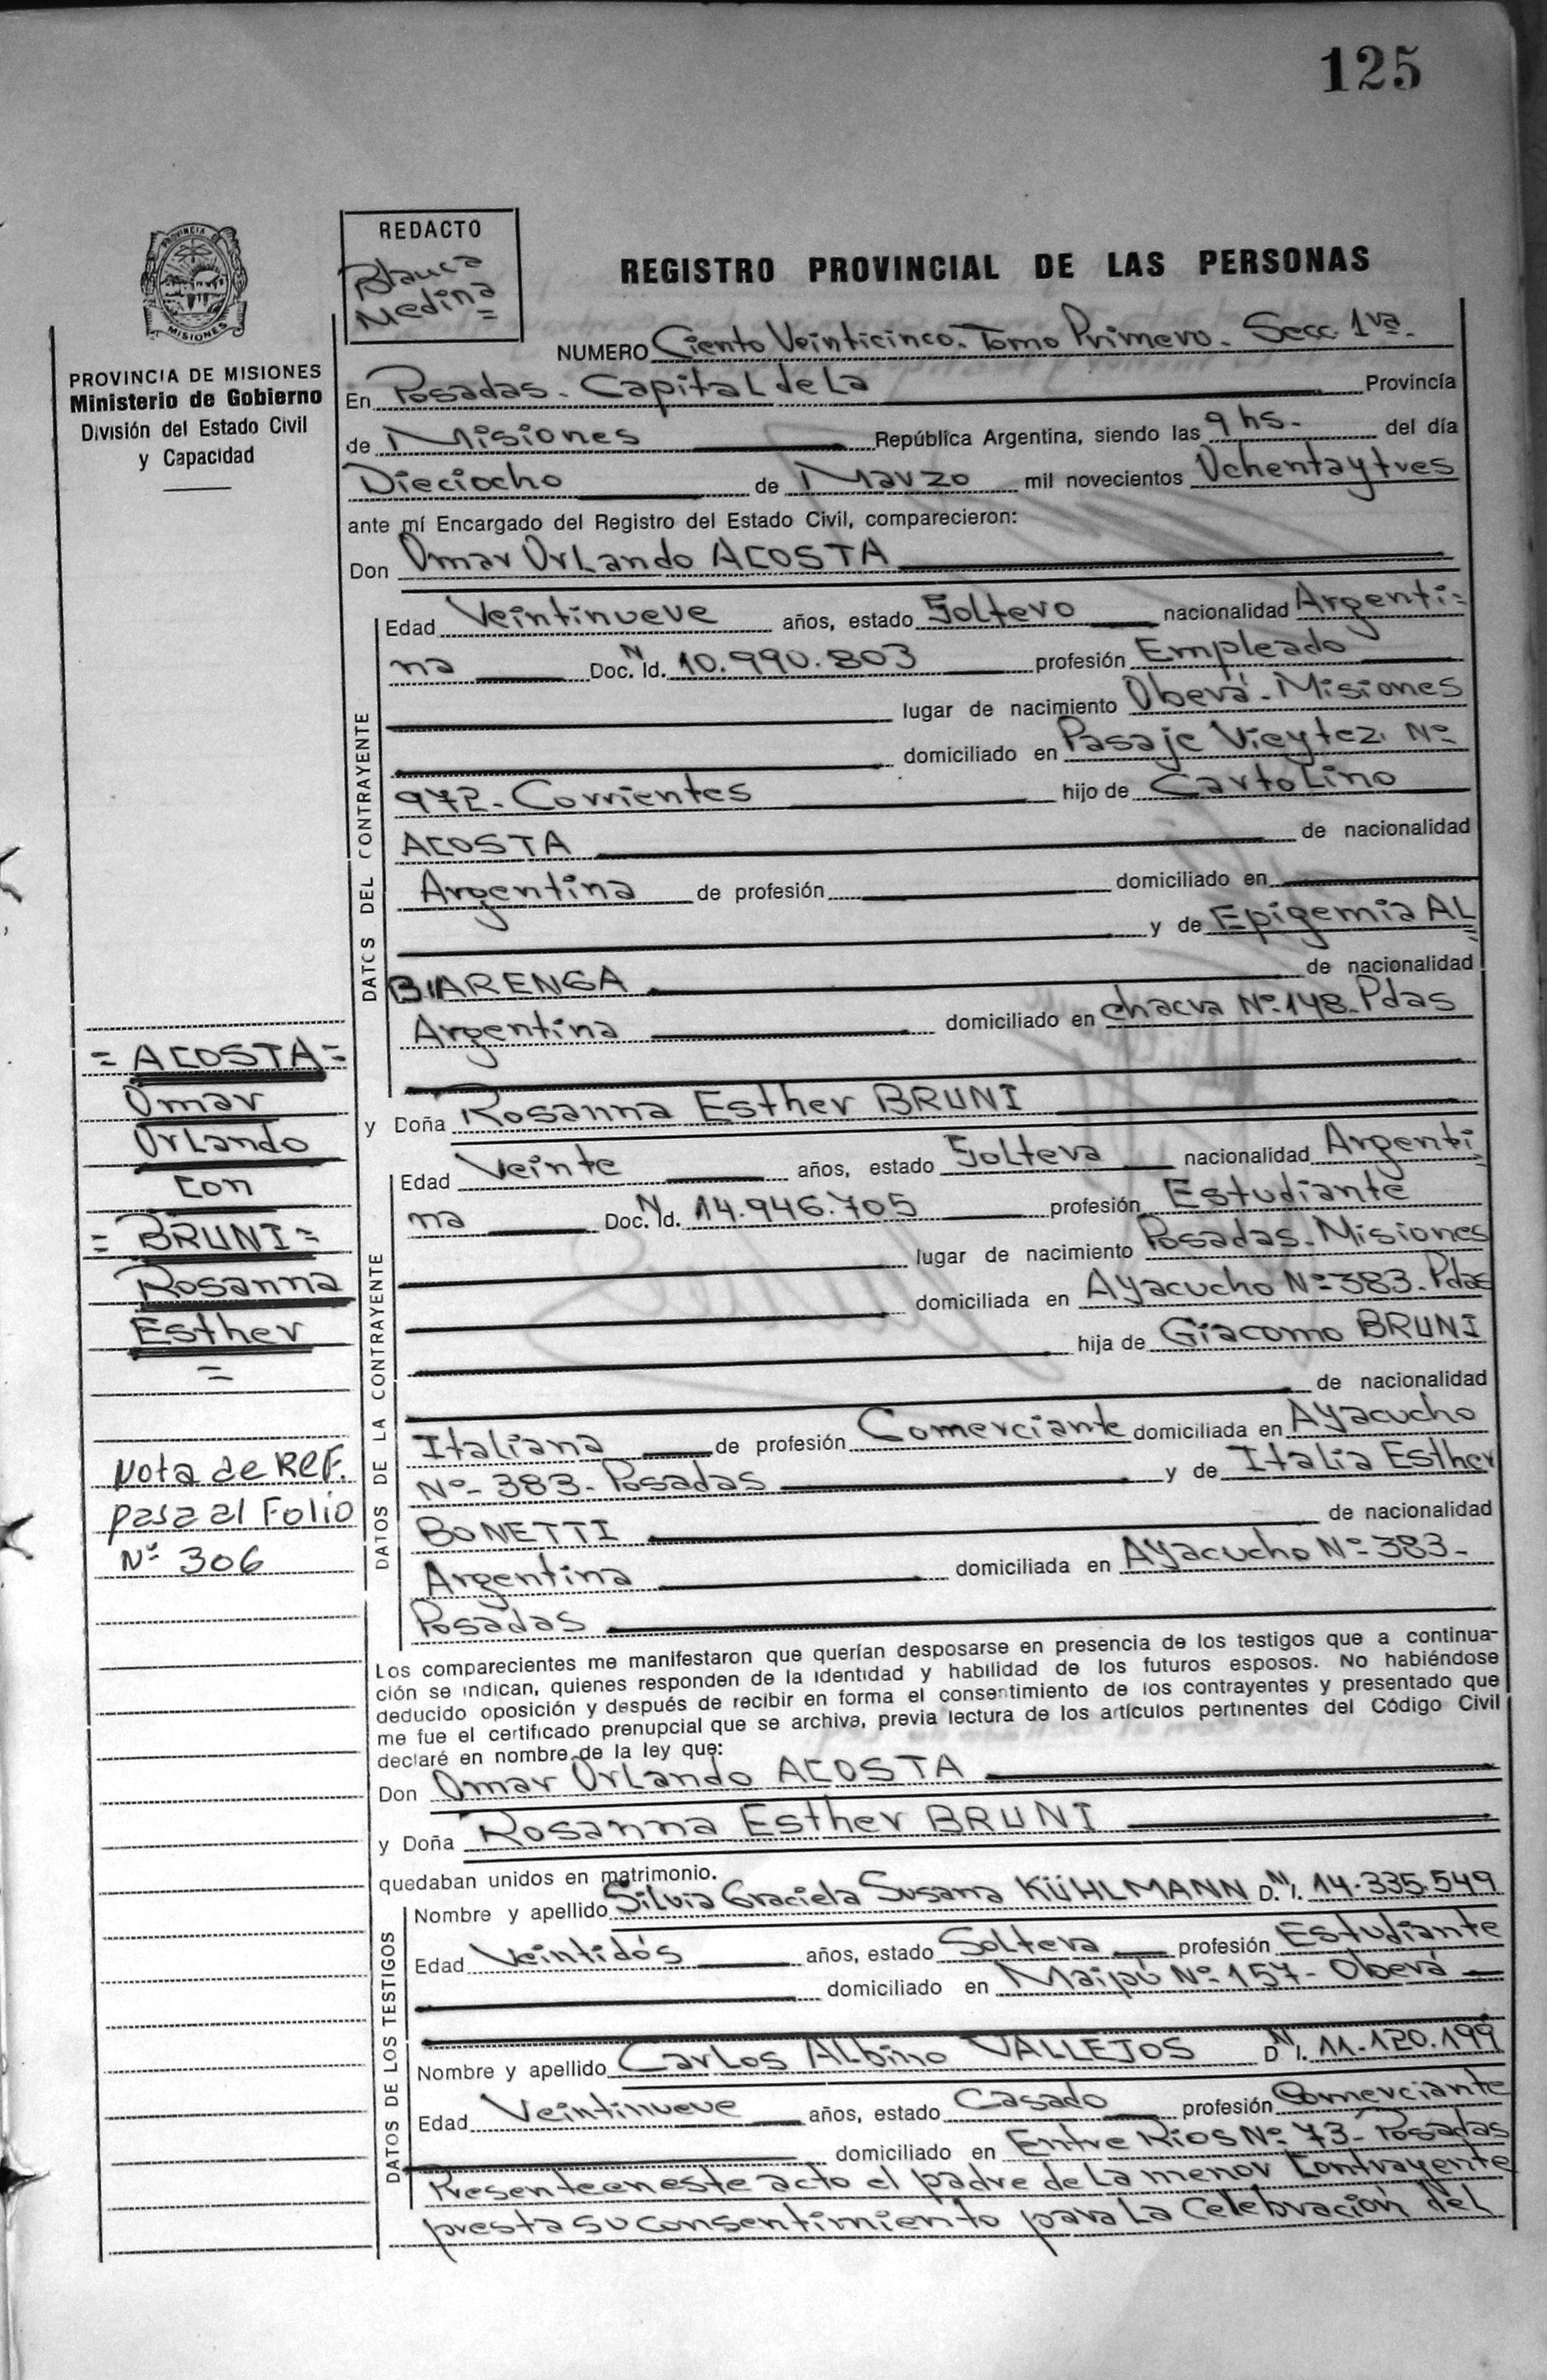 125
REDACTO
Blanca
Medina =
REGISTRO PROVINCIAL DE LAS PERSONAS
PROVINCIA DE MISIONES
PROVINCIA DE MISIONES
Ministerio de Gobierno
División del Estado Civil
y Capacidad
NUMERO Ciento Veinticinco. Tomo Primero. Secc. 1ra.
En Posadas. Capital de La Provincia
de Misiones República Argentina, siendo las 9 hs. del día
Dieciocho de Marzo mil novecientos Ochenta y tres
ante mí Encargado del Registro del Estado Civil, comparecieron:
Don Omar Orlando ACOSTA
DATOS DEL CONTRAYENTE
Edad Veintinueve años, estado Soltero nacionalidad Argenti=
na Doc. N Id. 10.990.803 profesión Empleado
lugar de nacimiento Oberá. Misiones
domiciliado en Pasaje Vieytez. Nº
972. Corrientes hijo de Cartolino
ACOSTA de nacionalidad
Argentina de profesión domiciliado en
y de Epigemia AL=
BARENGA de nacionalidad
Argentina domiciliado en chacra Nº 148. Pdas
= ACOSTA =
Omar
Orlando
con
= BRUNI =
Rosanna
Esther
=
Nota de Ref.
pasa al Folio
Nº 306
y Doña Rosanna Esther BRUNI
DATOS DE LA CONTRAYENTE
Edad Veinte años, estado Soltera nacionalidad Argenti=
na Doc. N Id. 14.946.705 profesión Estudiante
lugar de nacimiento Posadas. Misiones
domiciliada en Ayacucho Nº 383. Pdas
hija de Giacomo BRUNI
de nacionalidad
Italiana de profesión Comerciante domiciliada en Ayacucho
Nº 383. Posadas y de Italia Esther
BONETTI de nacionalidad
Argentina domiciliada en Ayacucho Nº 383-
Posadas
Los comparecientes me manifestaron que querían desposarse en presencia de los testigos que a continua-
ción se indican, quienes responden de la identidad y habilidad de los futuros esposos. No habiéndose
deducido oposición y después de recibir en forma el consentimiento de los contrayentes y presentado que
me fue el certificado prenupcial que se archiva, previa lectura de los artículos pertinentes del Código Civil
declaré en nombre de la ley que:
Don Omar Orlando ACOSTA
y Doña Rosanna Esther BRUNI
quedaban unidos en matrimonio.
DATOS DE LOS TESTIGOS
Nombre y apellido Silvia Graciela Susana KÜHLMANN D.N.I. 14.335.549
Edad Veintidós años, estado Soltera profesión Estudiante
domiciliado en Maipú Nº 157- Oberá
Nombre y apellido Carlos Albino VALLEJOS D.N.I. 11.120.199
Edad Veintinueve años, estado Casado profesión Comerciante
domiciliado en Entre Ríos Nº 73- Posadas
Presente en este acto el padre de La menor Contrayente
presta su consentimiento para La Celebración del